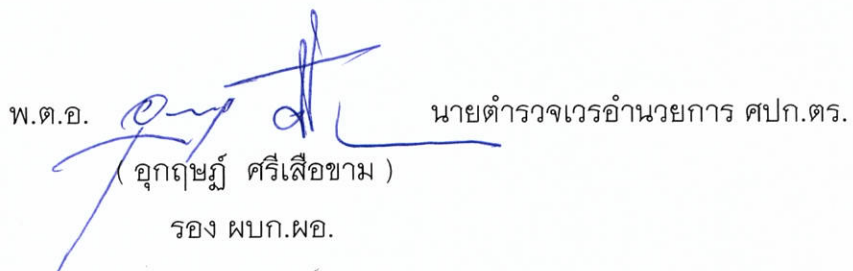 พ.ต.อ. นายตำรวจเวรอำนวยการ ศปก.ตร.
( อุกฤษฏ์ ศรีเสือขาม )
รอง ผบก.ผอ.